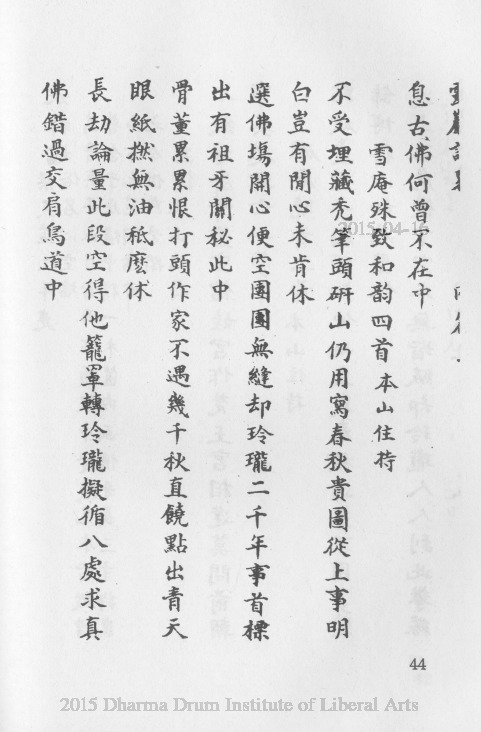 息古佛何曾不在中
雪庵殊致和韵四首 本山住持
不受埋藏禿筆頭研山仍用寫春秋貴圖從上事明
白豈有閒心未肯休
選佛場開心便空團團無縫却玲瓏二千年事首標
出有祖牙關秘此中
骨董累累恨打頭作家不遇幾千秋直饒點出青天
眼紙撚無油秪麽休
長劫論量此段空得他籠罩轉玲瓏擬循八處求真
佛錯過交肩鳥道中
2015-04-16
44
2015 Dharma Drum Institute of Liberal Arts